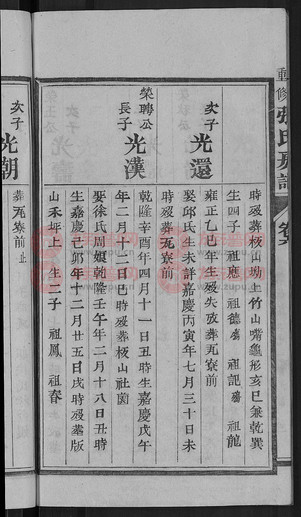 重修張氏族譜
時歿葬板山坳上竹山嘴龜形亥巳兼乾巽
生四子 祖應 祖德殤 祖龍殤 祖龍
次子 光還
雍正乙巳年生歿失攷葬瓦寮前
娶邱氏生未詳嘉慶丙寅年七月三十日未
時歿葬瓦寮前
榮聘公長子 光漢
乾隆辛酉年四月十一日丑時生嘉慶戊午
年二月十二日巳時歿葬板山社茵
娶徐氏周娘乾隆壬午年二月十八日丑時
生嘉慶己卯年十二月廿五日戌時歿葬版
山禾坪上 生二子 祖鳳 祖春
次子 光朝
葬瓦寮前止